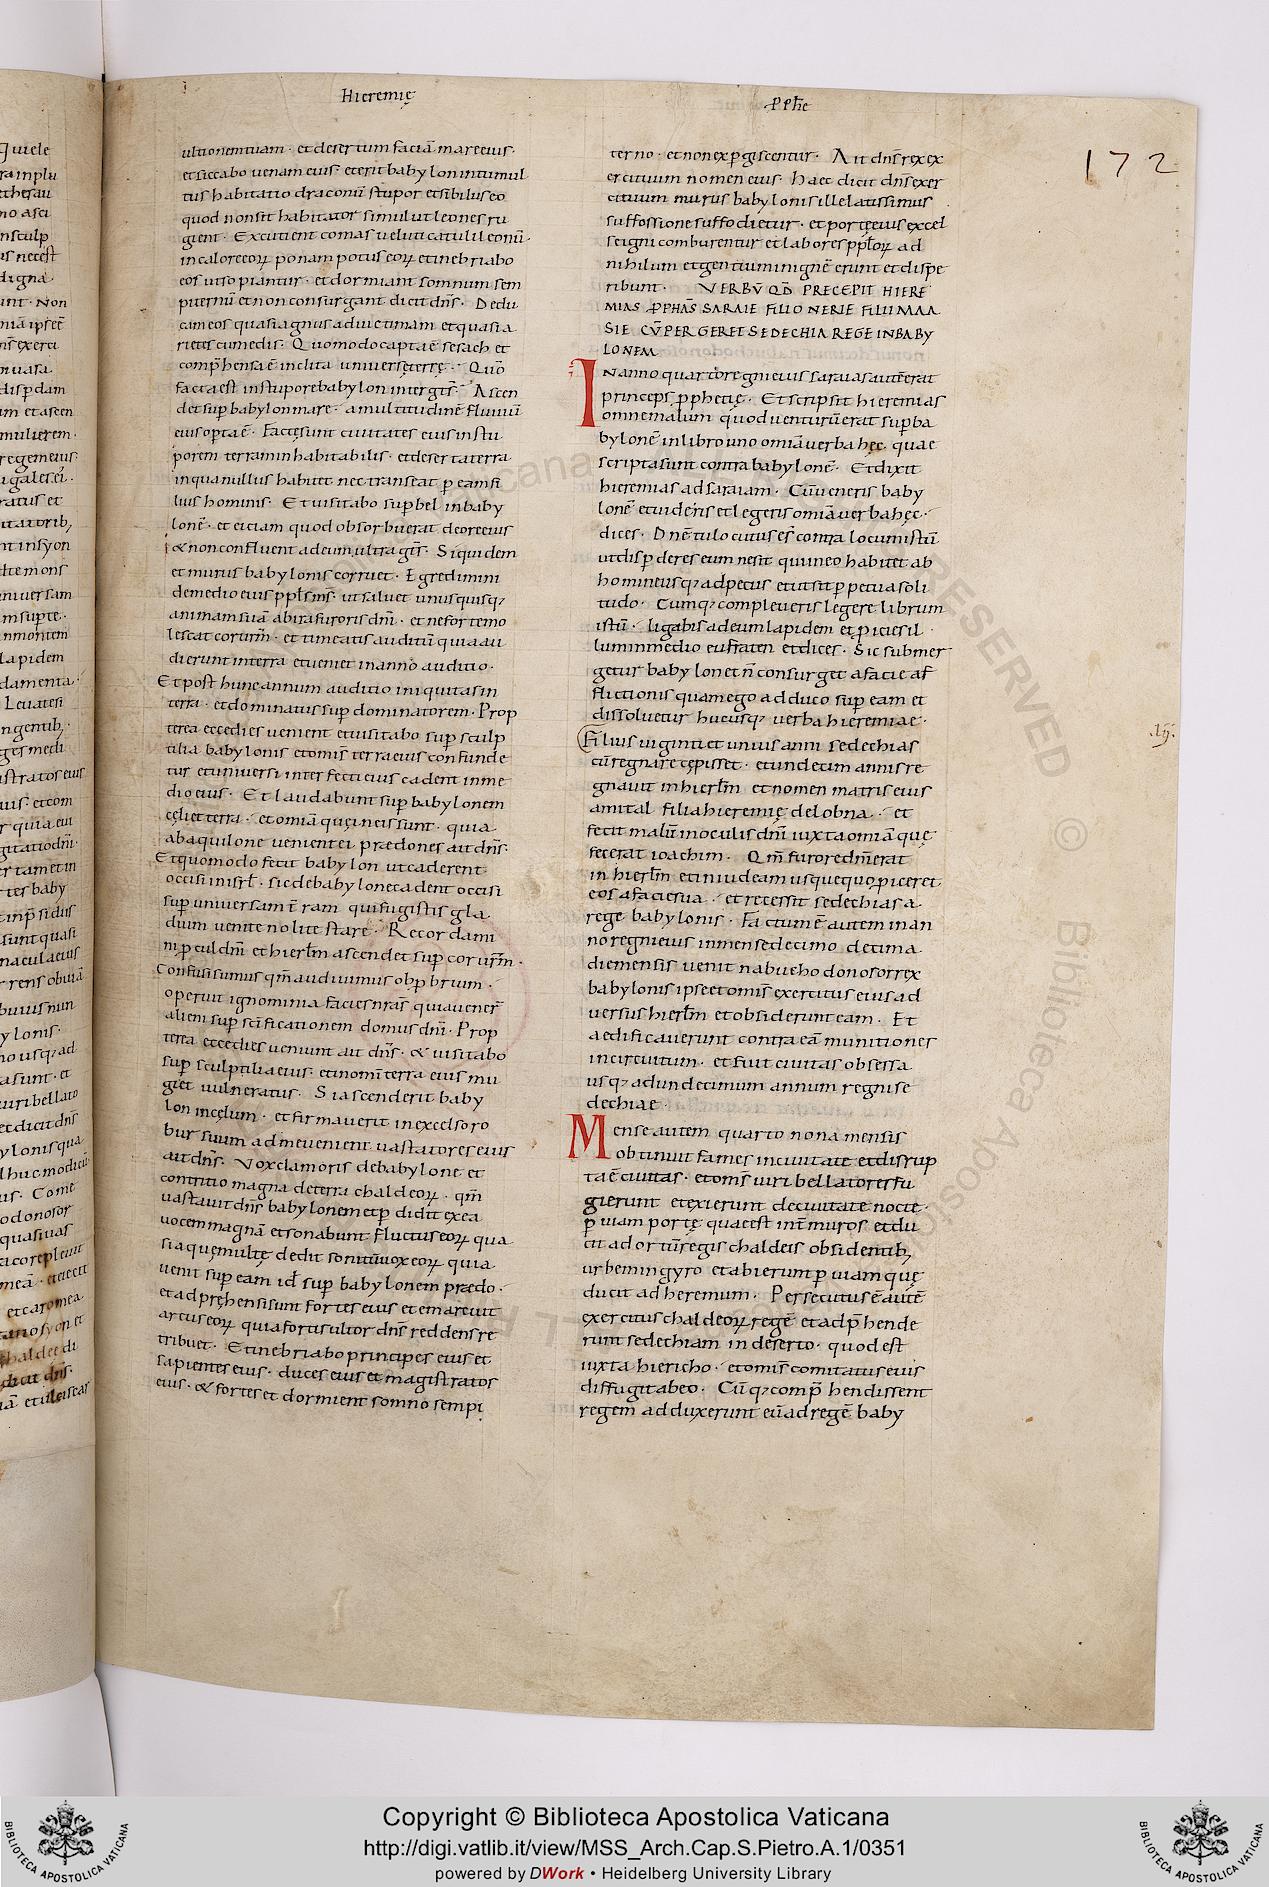 Hieremię
ultionem tuam · et desertum faciā mare eius ·
et siccabo uenam eius · et erit babylon in tumul
tus habitatio draconū stupor et sibilus eo
quod non sit habitator simul ut leones ru
gient · Excutient comas ueluti catuli leonū ·
in calore eoꝝ ponam potus eoꝝ et inebriabo
eos ut sopiantur · et dormiant somnum sem
piternū et non consurgant dicit dn̄s · Dedu
cam eos quasi agnus ad uictimam et quasi a
rietes cum edis · Quomodo capta ē sesach et
comp̄hensa ē inclita uniuersę terrę · Quō
facta est in stupore babylon inter gts̄ · Ascen
det sup̱ babylon mare · a multitudinē fluuiū
eius op̱ta ē · Factę sunt ciuitates eius in stu
porem terram inhabitabilis · et deserta terra
in qua nullus habitet nec transeat p̱ eam fi
lius hominis · Et uisitabo sup̱ bel in baby
lonē · et eiciam quod obsorbuerat de ore eius
& non confluent ad eum ultra gts̄ · Siquidem
et murus babylonis corruet · Egredimini
de medio eius ppl̄s ms̄ · ut saluet unusquisq;
animam suā ab ira furoris dn̄i · et ne forte mo
lescat cor ur̄m · et timeatis auditū qui au
dierunt in terra et ueniet in anno auditio ·
Et post hunc annum auditio iniquitas in
terra · et dominatus sup̱ dominatorem · Prop
terea ecce dies uenient et uisitabo sup̱ sculp
tilia babylonis et omīs terra eius confunde
tur et uniuersi interfecti eius cadent in me
dio eius · Et laudabunt sup̱ babylonem
cęli et terra · et omīa quę in eis sunt · quia
ab aquilone uenient ei prædones ait dn̄s ·
Et quomodo fecit babylon ut caderent
occisi in isrl̄ · sic de babylone cadent occisi
sup̱ uniuersam t̄ram qui fugistis gla
dium uenite nolite stare · Recordami
ni p̱cul dn̄i et hierlm̄ ascendet sup̱ cor ur̄m ·
Confusi sumus qm̄ audiuimus obp̱brium ·
operuit ignominia facies nr̄as quia uener̄
alieni sup̱ sc̄ificationem domus dn̄i · Prop
terea ecce dies ueniunt ait dn̄s · & uisitabo
sup̱ sculptilia eius · et in omī terra eius mu
giet uulneratus · Si ascenderit baby
lon in cęlum · et firmauerit in excelso ro
bur suum a d me uenient uastatores eius
ait dn̄s · Vox clamoris de babylone et
contritio magna de terra chaldeoꝝ · qm̄
uastauit dn̄s babylonem et p̱didit ex ea
uocem magnā et sonabunt fluctus eoꝝ qua
si aquę multę dedit sonitū uox eoꝝ quia
uenit sup̱ eam id̄ sup̱ babylonem prædo ·
et adpręhensi sunt fortes eius et emarcuit
arcus eoꝝ quia fortis ultor dn̄s reddens re
tribuet · Et inebriabo principes eius et
sapientes eius · duces eius et magistratos
eius · & fortes et dormient somno sempi
P Ph̄e
172
terno · et non exp̱giscentur · Ait dn̄s rex ex
ercituum nomen eius · haec dicit dn̄s exer
cituum murus babylonis ille latissimus
suffossione suffodietur · et portę eius excel
se igni comburentur et labores pp̄loꝝ ad
nihilum et gentium in ignē erunt et dispe
ribunt · VERBŪ QD̄ PRECEPIT HIERE
MIAS PPHAS̄ SARAIE FILIO NERIE FILII MAA
SIE CV̄ PERGERET SEDECHIA REGE IN BABY
LONEM
In anno quarto regni eius saraias autē erat
princeps p̱phetię · Et scripsit hieremias
omne malum quod uenturū erat sup̱ ba
bylonē in libro uno omīa uerba hęc quae
scripta sunt contra babylonē · Et dixit
hieremias ad saraiam · Cū ueneris baby
lonē et uideris et legeris omīa uerba hęc ·
dices · Dn̄e tu locutus es̄ contra locum istū
ut disp̱deres eum ne sit qui in eo habitet ab
homine usq; ad pecus et ut sit p̱petua soli
tudo · Cumq; compleueris legere librum
istū · ligabis ad eum lapidem et p̱icies il
lum in medio eufraten et dices · Sic submer
getur babylon et n̄ consurget a facie af
flictionis quam ego adduco sup̱ eam et
dissoluetur hucusq; uerba hieremiae ·
Filius uiginti et unius anni sedechias
cū regnare cępisset · et undecim annis re
gnauit in hierlm̄ et nomen matris eius
amital filia hieremię de lobna · et
fecit malū in oculis dn̄i iuxta omīa quę
fecerat ioachim · Qm̄ furor dn̄i erat
in hierlm̄ et in iudeam usquequo p̱iceret
eos a facie sua · et recessit sedechias a
rege babylonis · Factum ē autem in an
no regni eius in mense decimo decima
die mensis uenit nabuchodonosor rex
babylonis ipse et omīs exercitus eius ad
uersus hierlm̄ et obsiderunt eam · Et
aedificauerunt contra eā munitiones
in circuitum · et fuit ciuitas obsessa
usq; ad undecimum annum regni se
dechiae ·
.lii.
Mense autem quarto nona mensis
obtinuit fames in ciuitate et disrup
ta ē ciuitas · et oms̄ uiri bellatores fu
gierunt et exierunt de ciuitate nocte ·
p̱ uiam portę quae est int̄ muros et du
cit ad ortū regis chaldeis obsidentib;
urbem in gyro et abierunt p̱ uiam quę
ducit ad heremum · Persecutus ē autē
exercitus chaldeoꝝ regē et adp̄hende
runt sedechiam in deserto · quod est
iuxta hiericho · et omīs comitatus eius
diffugit ab eo · Cūq; comp̄hendissent
regem adduxerunt eū ad regē baby
Copyright © Biblioteca Apostolica Vaticana
http://digi.vatlib.it/view/MSS_Arch.Cap.S.Pietro.A.1/0351
powered by DWork • Heidelberg University Library
BIBLIOTECA APOSTOLICA VATICANA
BIBLIOTECA APOSTOLICA VATICANA